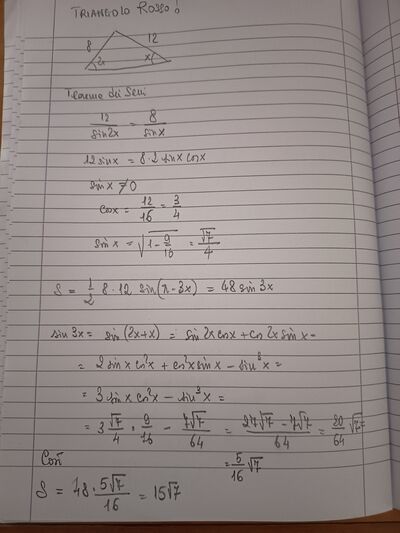 TRIANGOLO ROSSO!
8
12
2x
x
Teorema dei Seni
12/sin2x = 8/sinx
12 sinx = 8·2 sinx cosx
sinx ≠ 0
cosx = 12/16 = 3/4
sinx = √(1 - 9/16) = √7/4
S = 1/2 8·12 sin(π-3x) = 48 sin3x
sin3x = sin(2x+x) = sin2x cosx + cos2x sinx =
= 2 sinx cos²x + cos²x sinx - sin³x =
= 3 sinx cos²x - sin³x =
= 3 √7/4 · 9/16 - 7√7/64 = (27√7 - 7√7)/64 = 20/64 √7
= 5/16 √7
Così
S = 48 · 5√7/16 = 15√7